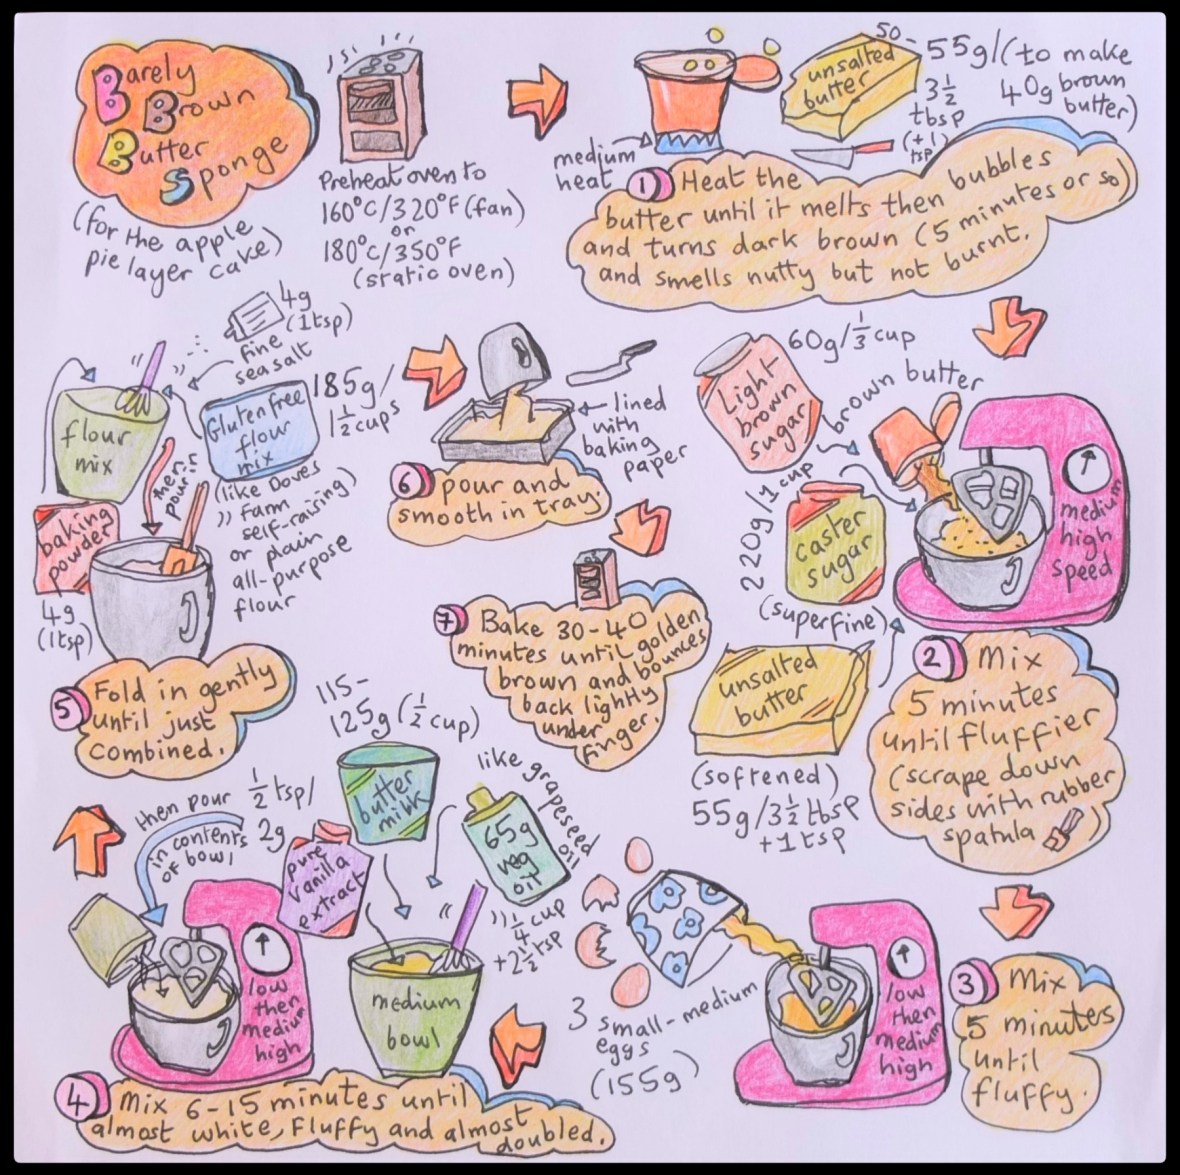 Barely
Brown
Butter
Sponge
(for the apple
pie layer cake)
Preheat oven to
160°C/320°F (fan)
or
180°C/350°F
(static oven)
medium
heat
unsalted
butter
50-
55g/(to make
3½ 40g brown
tbsp butter)
(+1
tsp)
1) Heat the
butter until it melts then bubbles
and turns dark brown (5 minutes or so)
and smells nutty but not burnt.
60g/⅓ cup
Light
brown
sugar
brown butter
220g/1 cup
caster
sugar
(superfine)
unsalted
butter
(softened)
55g/3½ tbsp
+1 tsp
medium
high
speed
2) Mix
5 minutes
until fluffier
(scrape down
sides with rubber
spatula )
3) Mix
5 minutes
until
fluffy.
low
then
medium
high
3 small-medium
eggs
(155g)
115-
125g (½ cup)
butter
milk
like grapeseed
oil
65g
veg
oil
¼ cup
+2½ tsp
½ tsp/
2g
pure
vanilla
extract
medium
bowl
then pour
in contents
of bowl
low
then
medium
high
4) Mix 6-15 minutes until
almost white, fluffy and almost
doubled.
4g
(1tsp)
fine
sea salt
flour
mix
Gluten free
flour
mix
185g/
1½ cups
(like Doves
Farm
self-raising)
or plain
all-purpose
flour
baking
powder
4g
(1tsp)
then
pour in
5) Fold in gently
until just
combined.
lined
with
baking
paper
6) pour and
smooth in tray.
7) Bake 30-40
minutes until golden
brown and bounces
back lightly
under
finger.